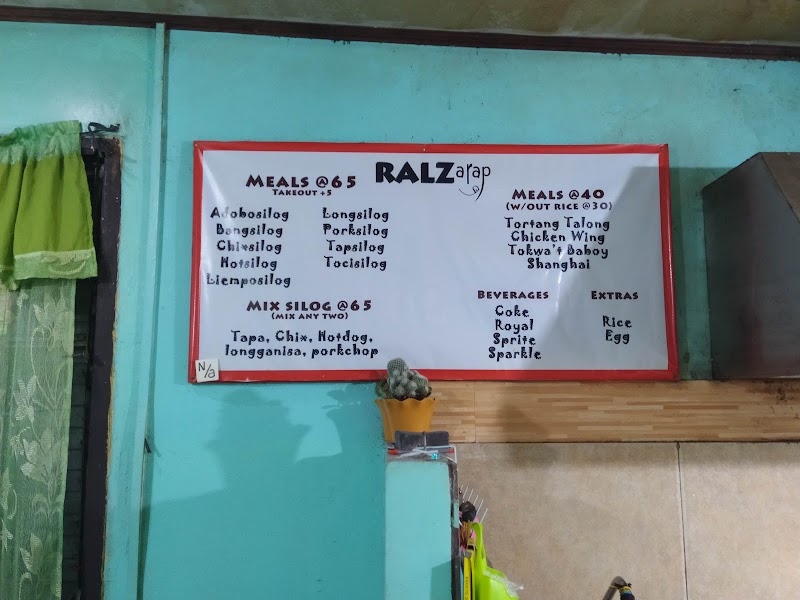 RALZarap
MEALS @65
TAKEOUT +5
Adobosilog
Bangsilog
Chixsilog
Hotsilog
Liemposilog
Longsilog
Porksilog
Tapsilog
Tocisilog
MIX SILOG @65
(MIX ANY TWO)
Tapa, Chix, Hotdog,
longganisa, porkchop
MEALS @40
(W/OUT RICE @30)
Tortang Talong
Chicken Wing
Tokwa't Baboy
Shanghai
BEVERAGES
Coke
Royal
Sprite
Sparkle
EXTRAS
Rice
Egg
N/a